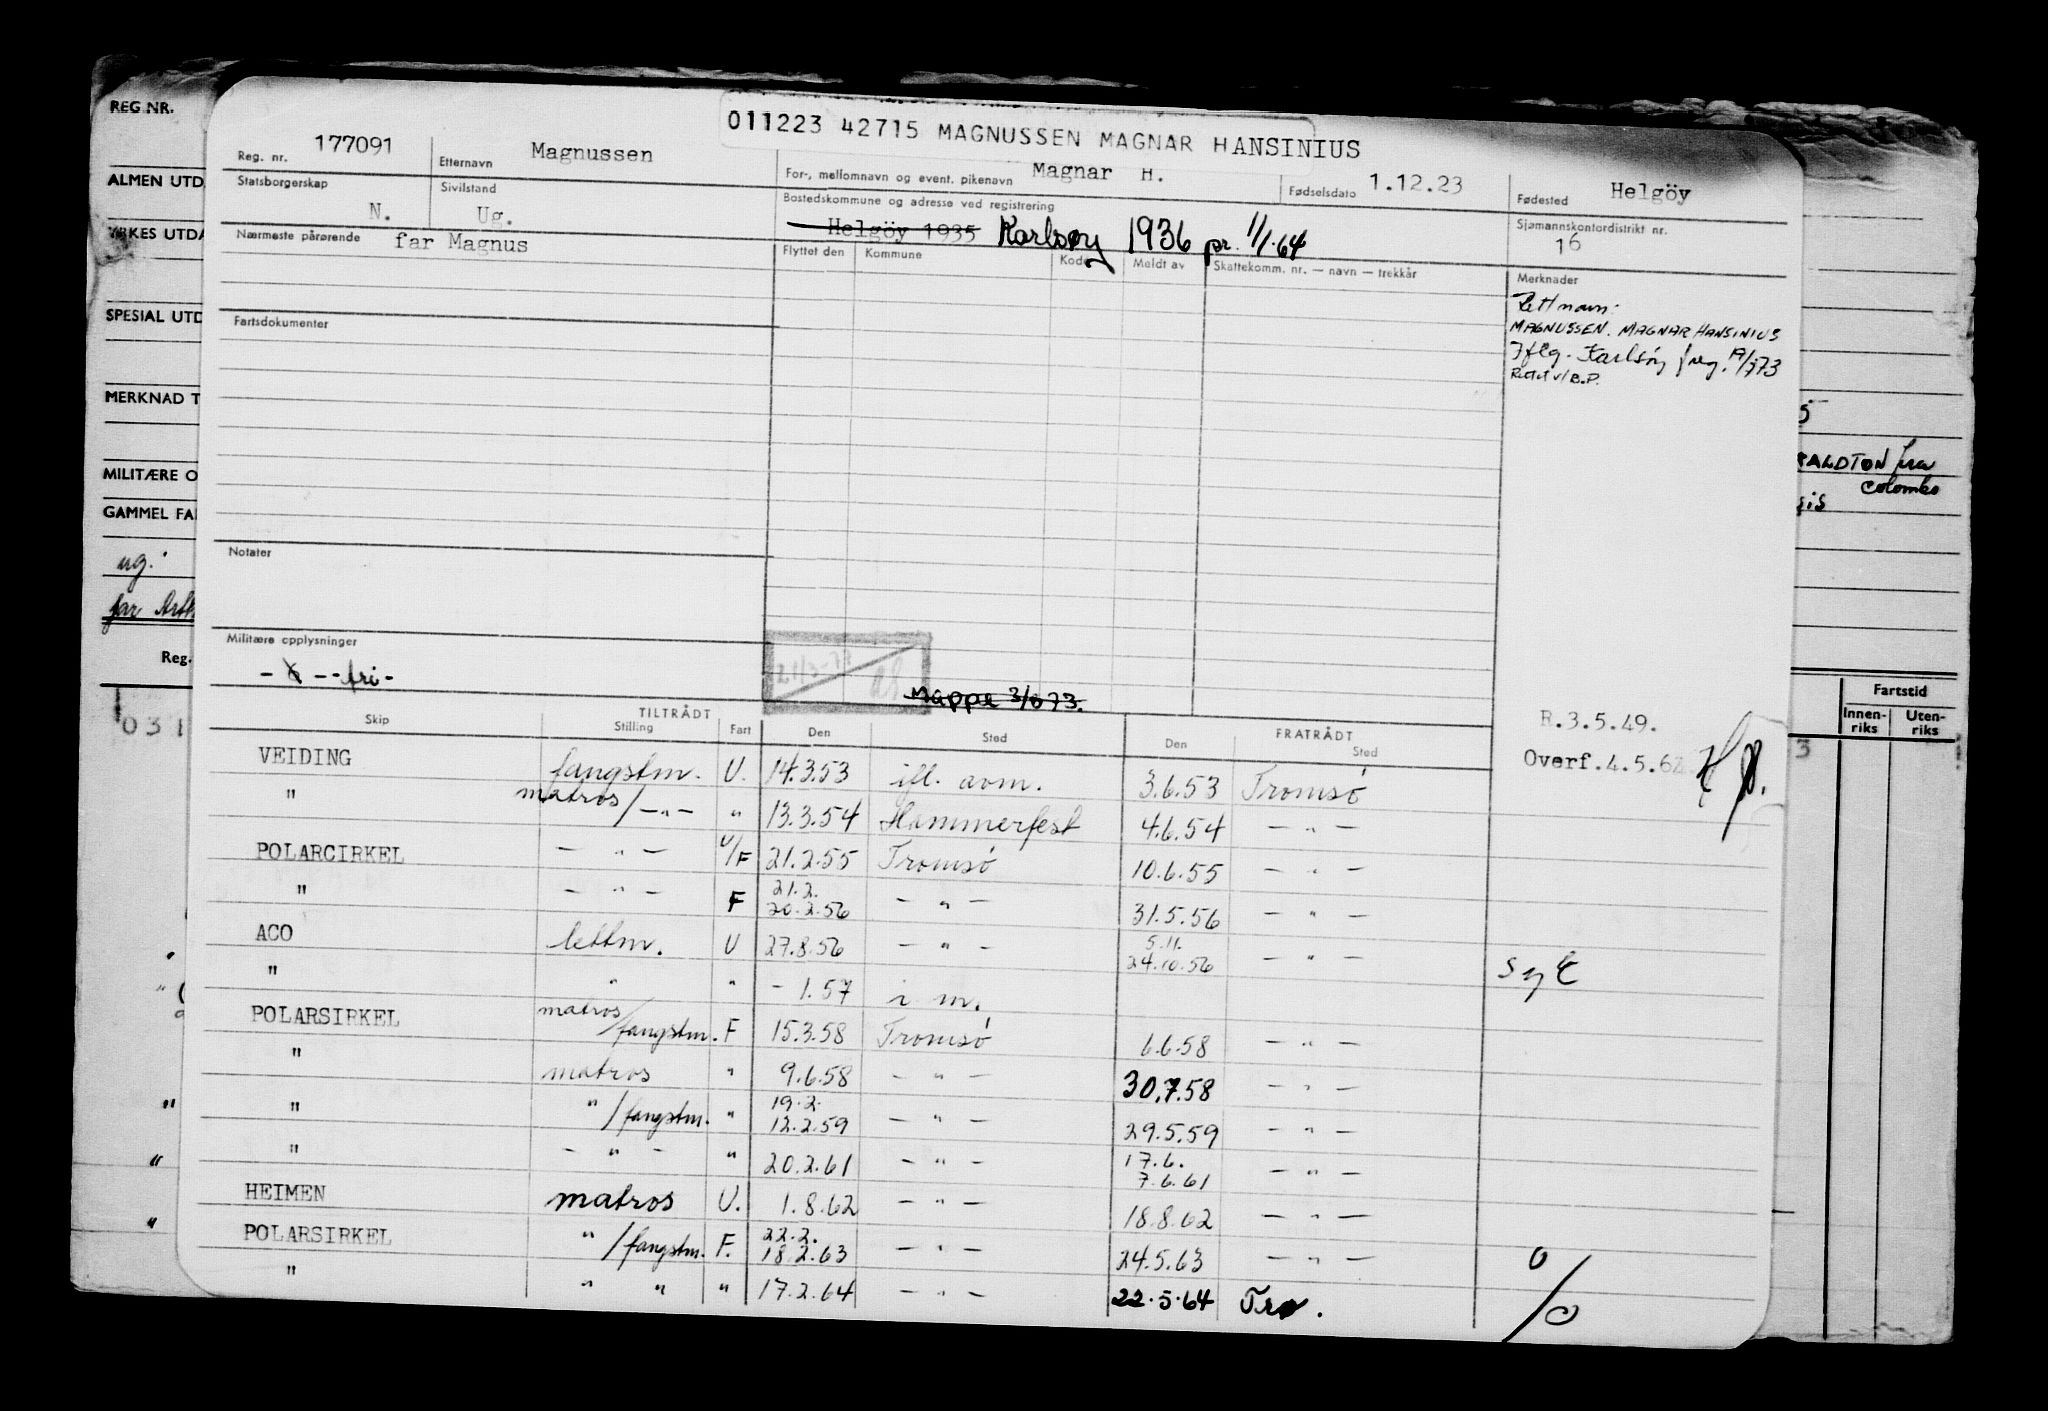 REG NR.
ALMEN UTD
YRKES UTDA
SPESIAL UTD
MERKNAD T
MILITÆRE O
GAMMEL FA
ug.
far
Reg.
031
011223 42715 MAGNUSSEN MAGNAR HANSINIUS
Reg. nr. 177091 Etternavn Magnussen For-, mellomnavn og event. pikenavn Magnar H. Fødselsdato 1.12.23 Fødested Helgöy
Statsborgerskap N. Sivilstand Ug. Bostedskommune og adresse ved registrering Helgöy 1935 Karlsøy 1936 pr. 1/1.64 Sjømannskontordistrikt nr. 16
Nærmeste pårørende far Magnus Flyttet den Kommune Kode Meldt av Skattekomm. nr. — navn — trekkår Merknader
Rett navn:
MAGNUSSEN. MAGNAR HANSINIUS
Iflg. Karlsøy freg.
Rettet v/ B.P.
Fartsdokumenter
Notater
Militære opplysninger
fri-
Mappe 3/8 73.
5
ALDTON fra
Colombo
sis
Fartstid
Innen-riks Uten-riks
3
R.3.5.49.
Overf.4.5.62
TILTRÅDT FRATRÅDT
Skip Stilling Fart Den Sted Den Sted
VEIDING fangstm. U. 14.3.53 ifl. avm. 3.6.53 Tromsø
" matros/—"— " 13.3.54 Hammerfest 4.6.54 — " —
POLARCIRKEL — " — U/F 21.2.55 Tromsø 10.6.55 — " —
" — " — F 21.2. 20.2.56 — " — 31.5.56 — " —
ACO lettm. U 27.8.56 — " — 5.11. 24.10.56 — " — syk
" " " - 1.57 i m.
POLARSIRKEL matros/fangstm. F 15.3.58 Tromsø 6.6.58 — " —
" matros " 9.6.58 — " — 30.7.58 — " —
" " /fangstm. " 19.2. 12.2.59 — " — 29.5.59 — " —
" - " - " 20.2.61 — " — 17.6. 7.6.61 — " —
HEIMEN matros U. 1.8.62 — " — 18.8.62 — " —
POLARSIRKEL " /fangstm. F. 22.2. 18.2.63 — " — 24.5.63 — " —
" " " " 17.2.64 — " — 22.5.64 Trø. 0/0